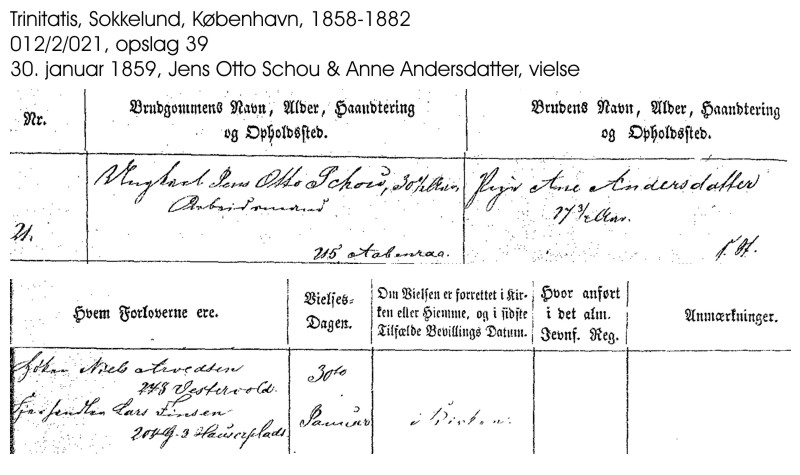 Trinitatis, Sokkelund, København, 1858-1882
012/2/021, opslag 39
30. januar 1859, Jens Otto Schou & Anne Andersdatter, vielse
Nr.
Brudgommens Navn, Alder, Haandtering
og Opholdssted.
Brudens Navn, Alder, Haandtering
og Opholdssted.
Ungkarl Jens Otto Schou, 30 1/2 Aar,
Arbeidsmand
21.
215 Aabenraa.
Pige Ane Andersdatter
Aar.
Hvem Forloverne ere.
Vielses-
Dagen.
Om Vielsen er forrettet i Kir-
ken eller Hjemme, og i sidste
Tilfælde Bevillings Datum.
Hvor anført
i det alm.
Jevnf. Reg.
Anmærkninger.
Niels Arvedsen
248 Vestervold.
Lars Finsen
204 G. 3 Hauserplads
30te
Januar
i Kirken.